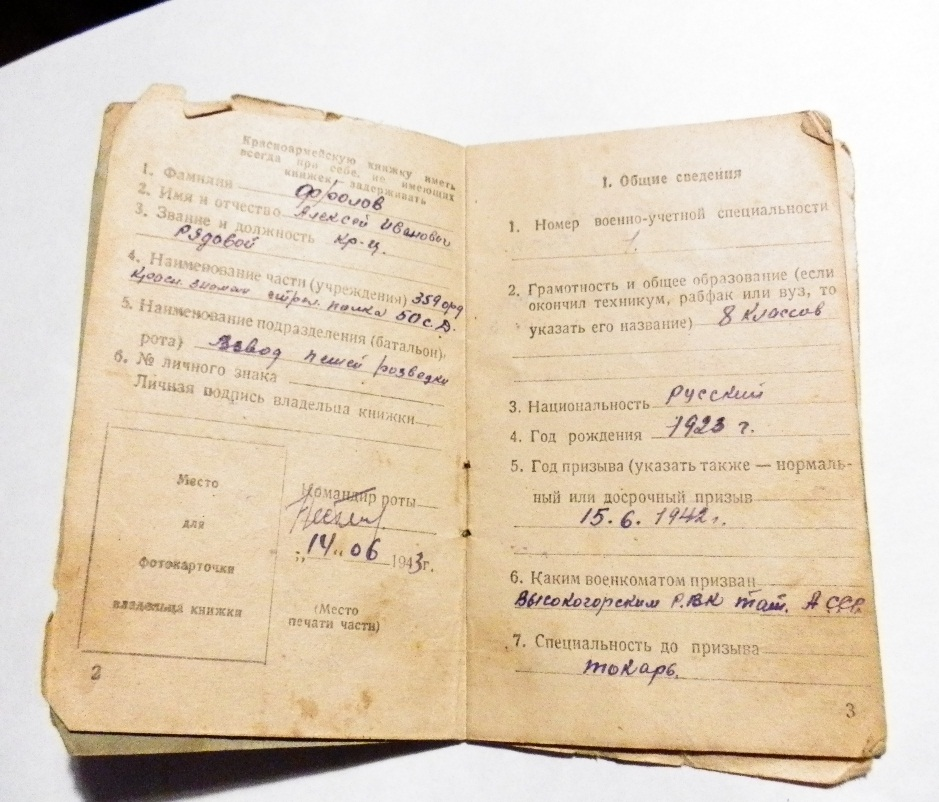 Красноармейскую книжку иметь
всегда при себе, не имеющих
книжек задерживать
1. Фамилия Фролов
2. Имя и отчество Алексей Иванович
3. Звание и должность Кр-ц.
Рядовой
4. Наименование части (учреждения) 359 орд
Красн. знамен стрел. полка 50 с.д.
5. Наименование подразделения (батальон,
рота) Взвод пешей розведки
6. № личного знака
Личная подпись владельца книжки
Место
для
фотокарточки
владельца книжки
Командир роты
„14“ 06 1943г.
(Место
печати части)
2
I. Общие сведения
1. Номер военно-учетной специальности
1.
2. Грамотность и общее образование (если
окончил техникум, рабфак или вуз, то
указать его название) 8 классов
3. Национальность русский
4. Год рождения 1923 г.
5. Год призыва (указать также — нормаль-
ный или досрочный призыв
15.6.1942г.
6. Каким военкоматом призван
Высокогорским Р.В.К Тат. АССР.
7. Специальность до призыва
токарь.
3